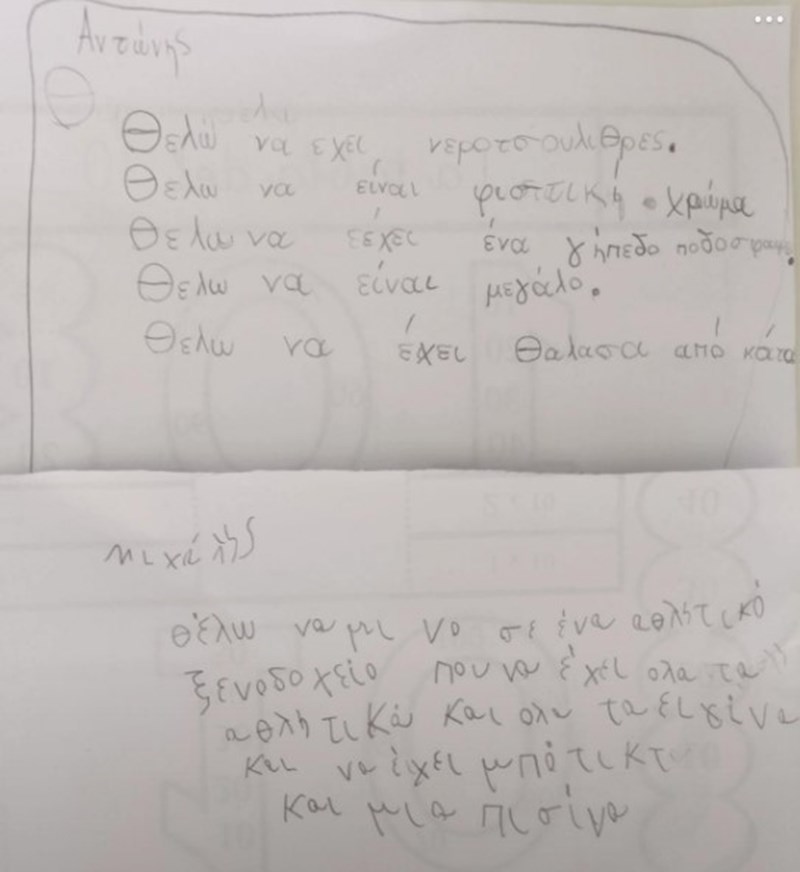 Αντώνης
Θελώ να εχει νεροτσουλιθρες.
Θελω να είναι φιστικί • χρώμα
Θελω να εέχει ένα γήπεδο
Θελω να είναι μεγάλο.
Θελω να έχει Θαλασα από κάτω
Μιχάλης
θέλω να μι νο σε ένα αθλητικό
ξενοδοχείο που να έχει ολα τα
αθλητικά και ολα τα
και να έχει
και μια πισίνα